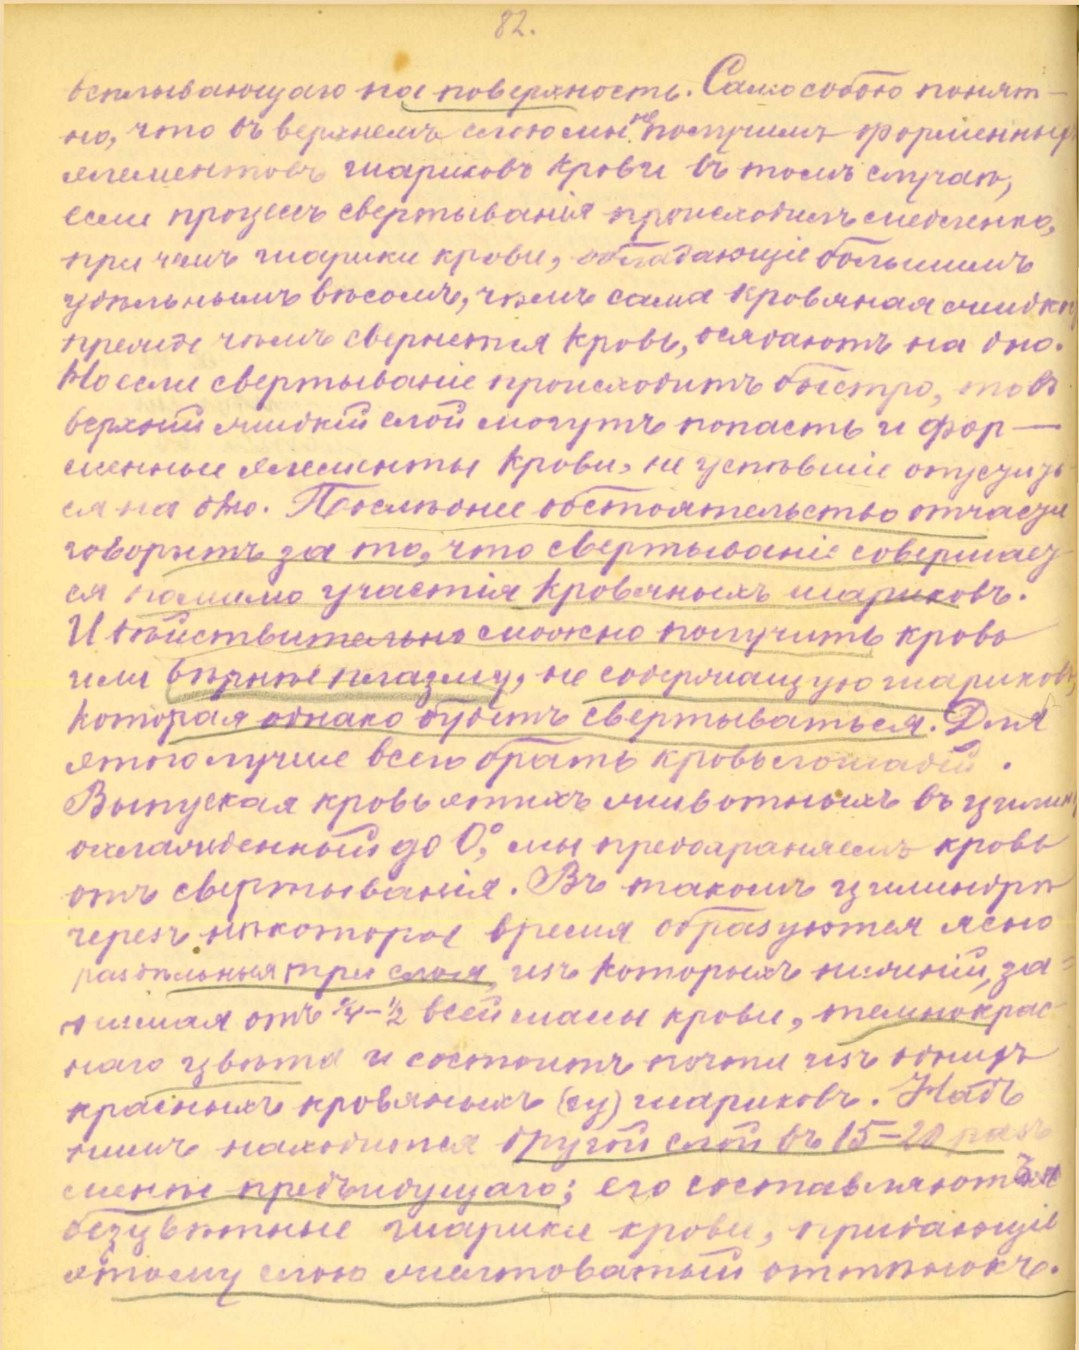 82.
всплывающаго на поверхность. Само собою понят-
но, что въ верхнемъ слою мы не получимъ форменныхъ
элементовъ шариковъ крови въ томъ случаѣ,
если процессъ свертыванія происходитъ медленно,
при чемъ шарики крови, обладающіе большимъ
удѣльнымъ вѣсомъ, чѣмъ сама кровяная жидкость,
прежде чѣмъ свернется кровь, осядаютъ на дно.
Но если свертываніе происходитъ быстро, то въ
верхній жидкій слой могутъ попасть и фор-
менные элементы крови, не успѣвшіе опустить-
ся на дно. Послѣднее обстоятельство отчасти
говоритъ за то, что свертываніе совершает-
ся помимо участія кровяныхъ шариковъ.
И дѣйствительно можно получить кровь
или вѣрнѣе плазму, не содержащую шариковъ,
которая однако будетъ свертываться. Для
этого лучше всего брать кровь лошадей.
Выпуская кровь этихъ животныхъ въ цилиндръ,
охлажденный до 0°, мы предохраняемъ кровь
отъ свертыванія. Въ такомъ цилиндрѣ
черезъ нѣкоторое время образуются ясно
раздѣльныя три слоя, изъ которыхъ нижній, за-
нимая отъ ¼-½ всей массы крови, темнокрас-
наго цвѣта и состоитъ почти изъ однихъ
красныхъ кровяныхъ шариковъ. Надъ
нимъ находится другой слой въ 15-20 разъ
менѣе предъидущаго; его составляютъ
безцвѣтные шарики крови, придающіе
этому слою желтоватый оттѣнокъ.